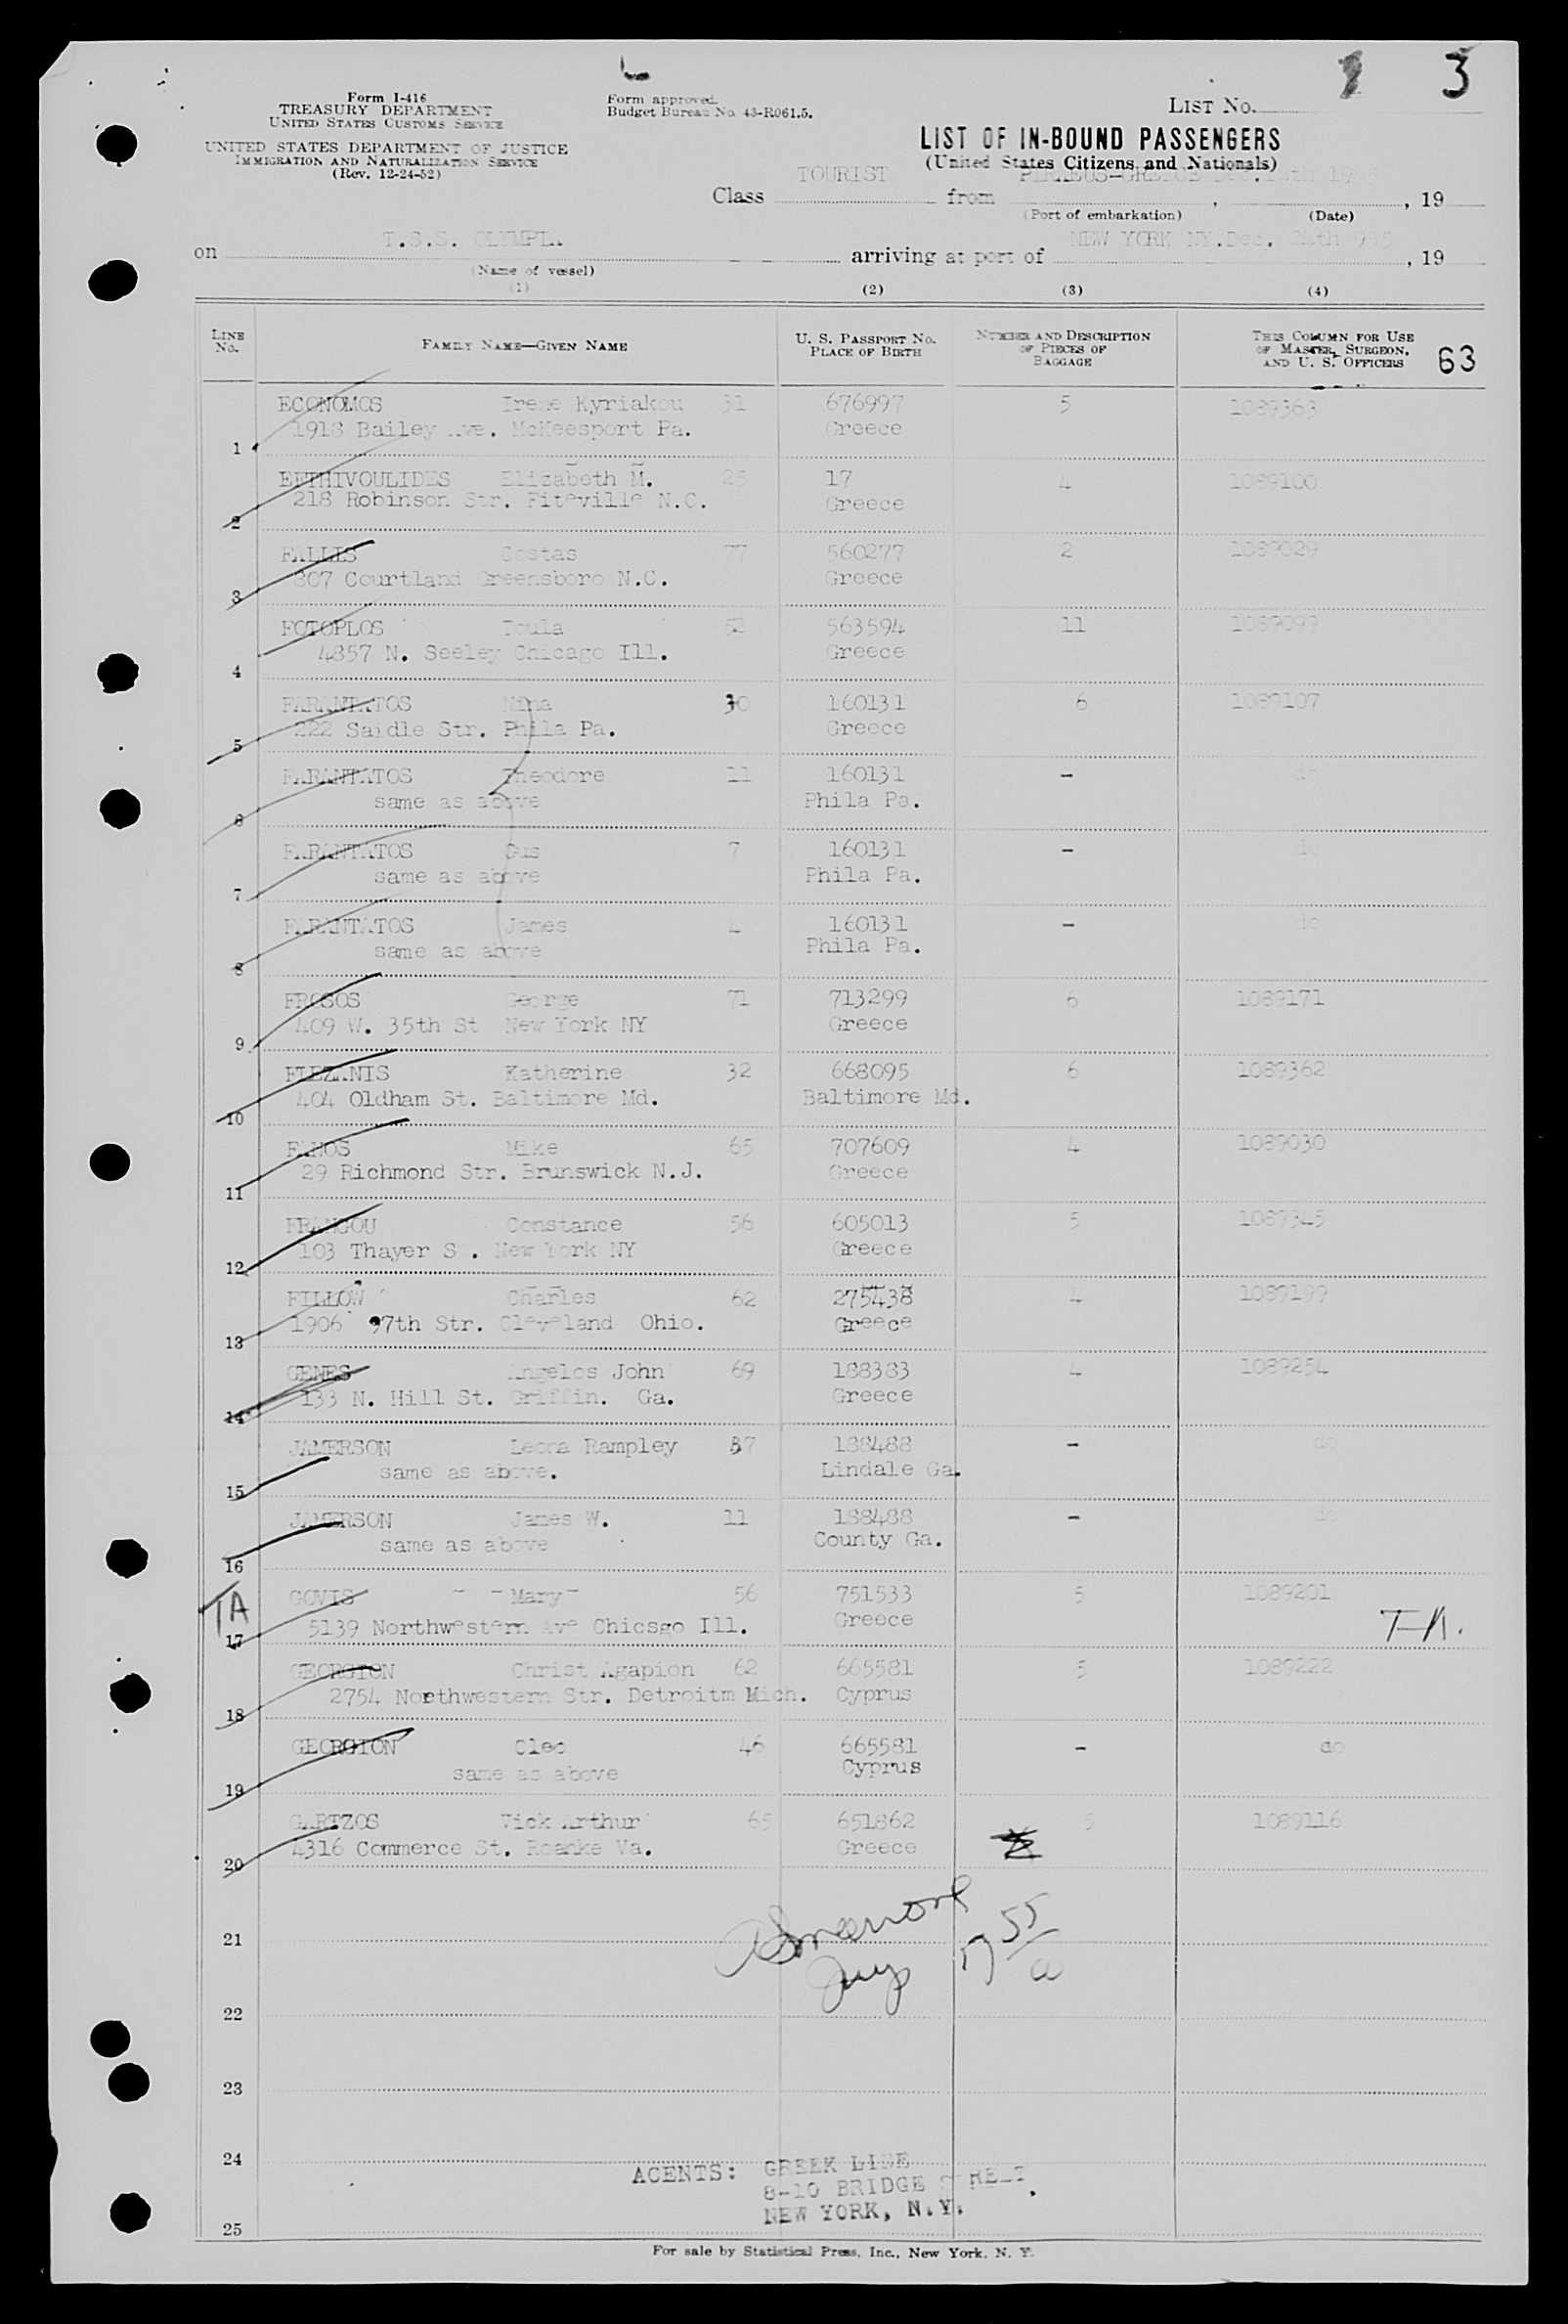 3
Form I-416
TREASURY DEPARTMENT
UNITED STATES CUSTOMS SERVICE
UNITED STATES DEPARTMENT OF JUSTICE
IMMIGRATION AND NATURALIZATION SERVICE
(Rev. 12-24-52)
Form approved.
Budget Bureau No. 43-R061.5.
LIST No.
LIST OF IN-BOUND PASSENGERS
(United States Citizens and Nationals)
Class TOURIST from PIRAEUS-GREECE Dec. , 19
(Port of embarkation) (Date)
on T.S.S. OLYMPIA arriving at port of NEW YORK NY.Dec. , 19
(Name of vessel)
(1) (2) (3) (4)
LINE No. FAMILY NAME—GIVEN NAME U. S. PASSPORT No. PLACE OF BIRTH NUMBER AND DESCRIPTION OF PIECES OF BAGGAGE THIS COLUMN FOR USE OF MASTER, SURGEON, AND U. S. OFFICERS 63
ECONOMOS Irene Kyriakou 31 676997 5 1089363
1 1918 Bailey Ave. McKeesport Pa. Greece
EFTHIVOULIDES Elizabeth M. 25 17 4 1089100
2 218 Robinson Str. Fiteville N.C. Greece
FALLIS Costas 77 560277 2 1089029
3 807 Courtland Greensboro N.C. Greece
FOTOPLOS Toula 563594 11 1089099
4 4857 N. Seeley Chicago Ill. Greece
FARANTATOS Nina 30 160131 6 1089107
5 222 Saidle Str. Phila Pa. Greece
FARANTATOS Theodore 11 160131 - do
6 same as above Phila Pa.
FARANTATOS Gus 7 160131 - do
7 same as above Phila Pa.
FARANTATOS James 4 160131 - do
8 same as above Phila Pa.
FROSOS George 71 713299 6 1089171
9 409 W. 35th St New York NY Greece
FLEZANIS Katherine 32 668095 6 1089362
10 404 Oldham St. Baltimore Md. Baltimore Md.
FAMOS Mike 65 707609 4 1089030
11 29 Richmond Str. Brunswick N.J. Greece
FRANGOU Constance 56 605013 5 1089345
12 103 Thayer S . New York NY Greece
FILLOW Charles 62 275438 4 1089199
13 1906 97th Str. Cleveland Ohio. Greece
GENES Angelos John 69 188383 4 1089254
14 133 N. Hill St. Griffin. Ga. Greece
JAMERSON Leona Rampley 37 188488 - do
15 same as above. Lindale Ga.
JAMERSON James W. 11 188488 - do
16 same as above County Ga.
TA GOVIS Mary 56 751533 5 1089201
17 5139 Northwestern Ave Chicsgo Ill. Greece T-A.
GEORGION Christ Agapion 62 665581 5 1089222
18 2754 Northwestern Str. Detroitm Mich. Cyprus
GEORGION Cleo 46 665581 - do
19 same as above Cyprus
GARTZOS Vick Arthur 65 651862 5 1089116
20 4316 Commerce St. Roanke Va. Greece
21
22
23
24
AGENTS: GREEK LINE
8-10 BRIDGE STREET.
NEW YORK, N.Y.
25
For sale by Statistical Press, Inc., New York, N. Y.